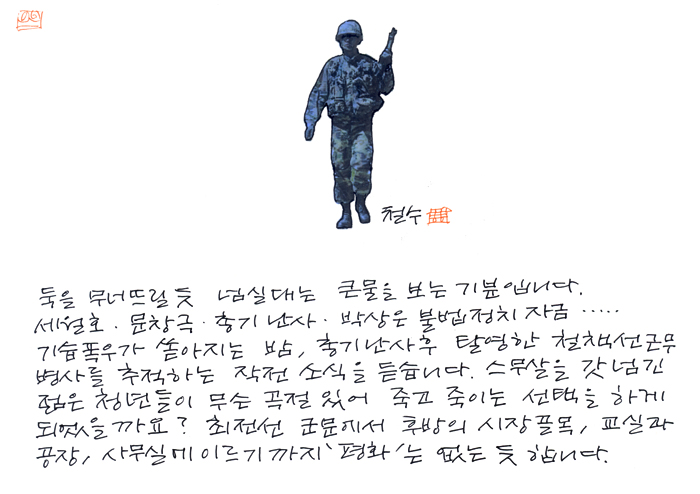 철수
둑을 무너뜨릴 듯 넘실대는 큰물을 보는 기분입니다.
세월호 · 문창극 · 총기난사 · 박상은 불법정치자금 .....
기습폭우가 쏟아지는 밤, 총기난사후 탈영한 철책선근무
병사를 추적하는 작전 소식을 듣습니다. 스무살을 갓넘긴
젊은 청년들이 무슨 곡절 있어 죽고 죽이는 선택을 하게
되었을까요? 최전선 군문에서 후방의 시장골목, 교실과
공장, 사무실에 이르기까지 '평화'는 없는 듯 합니다.